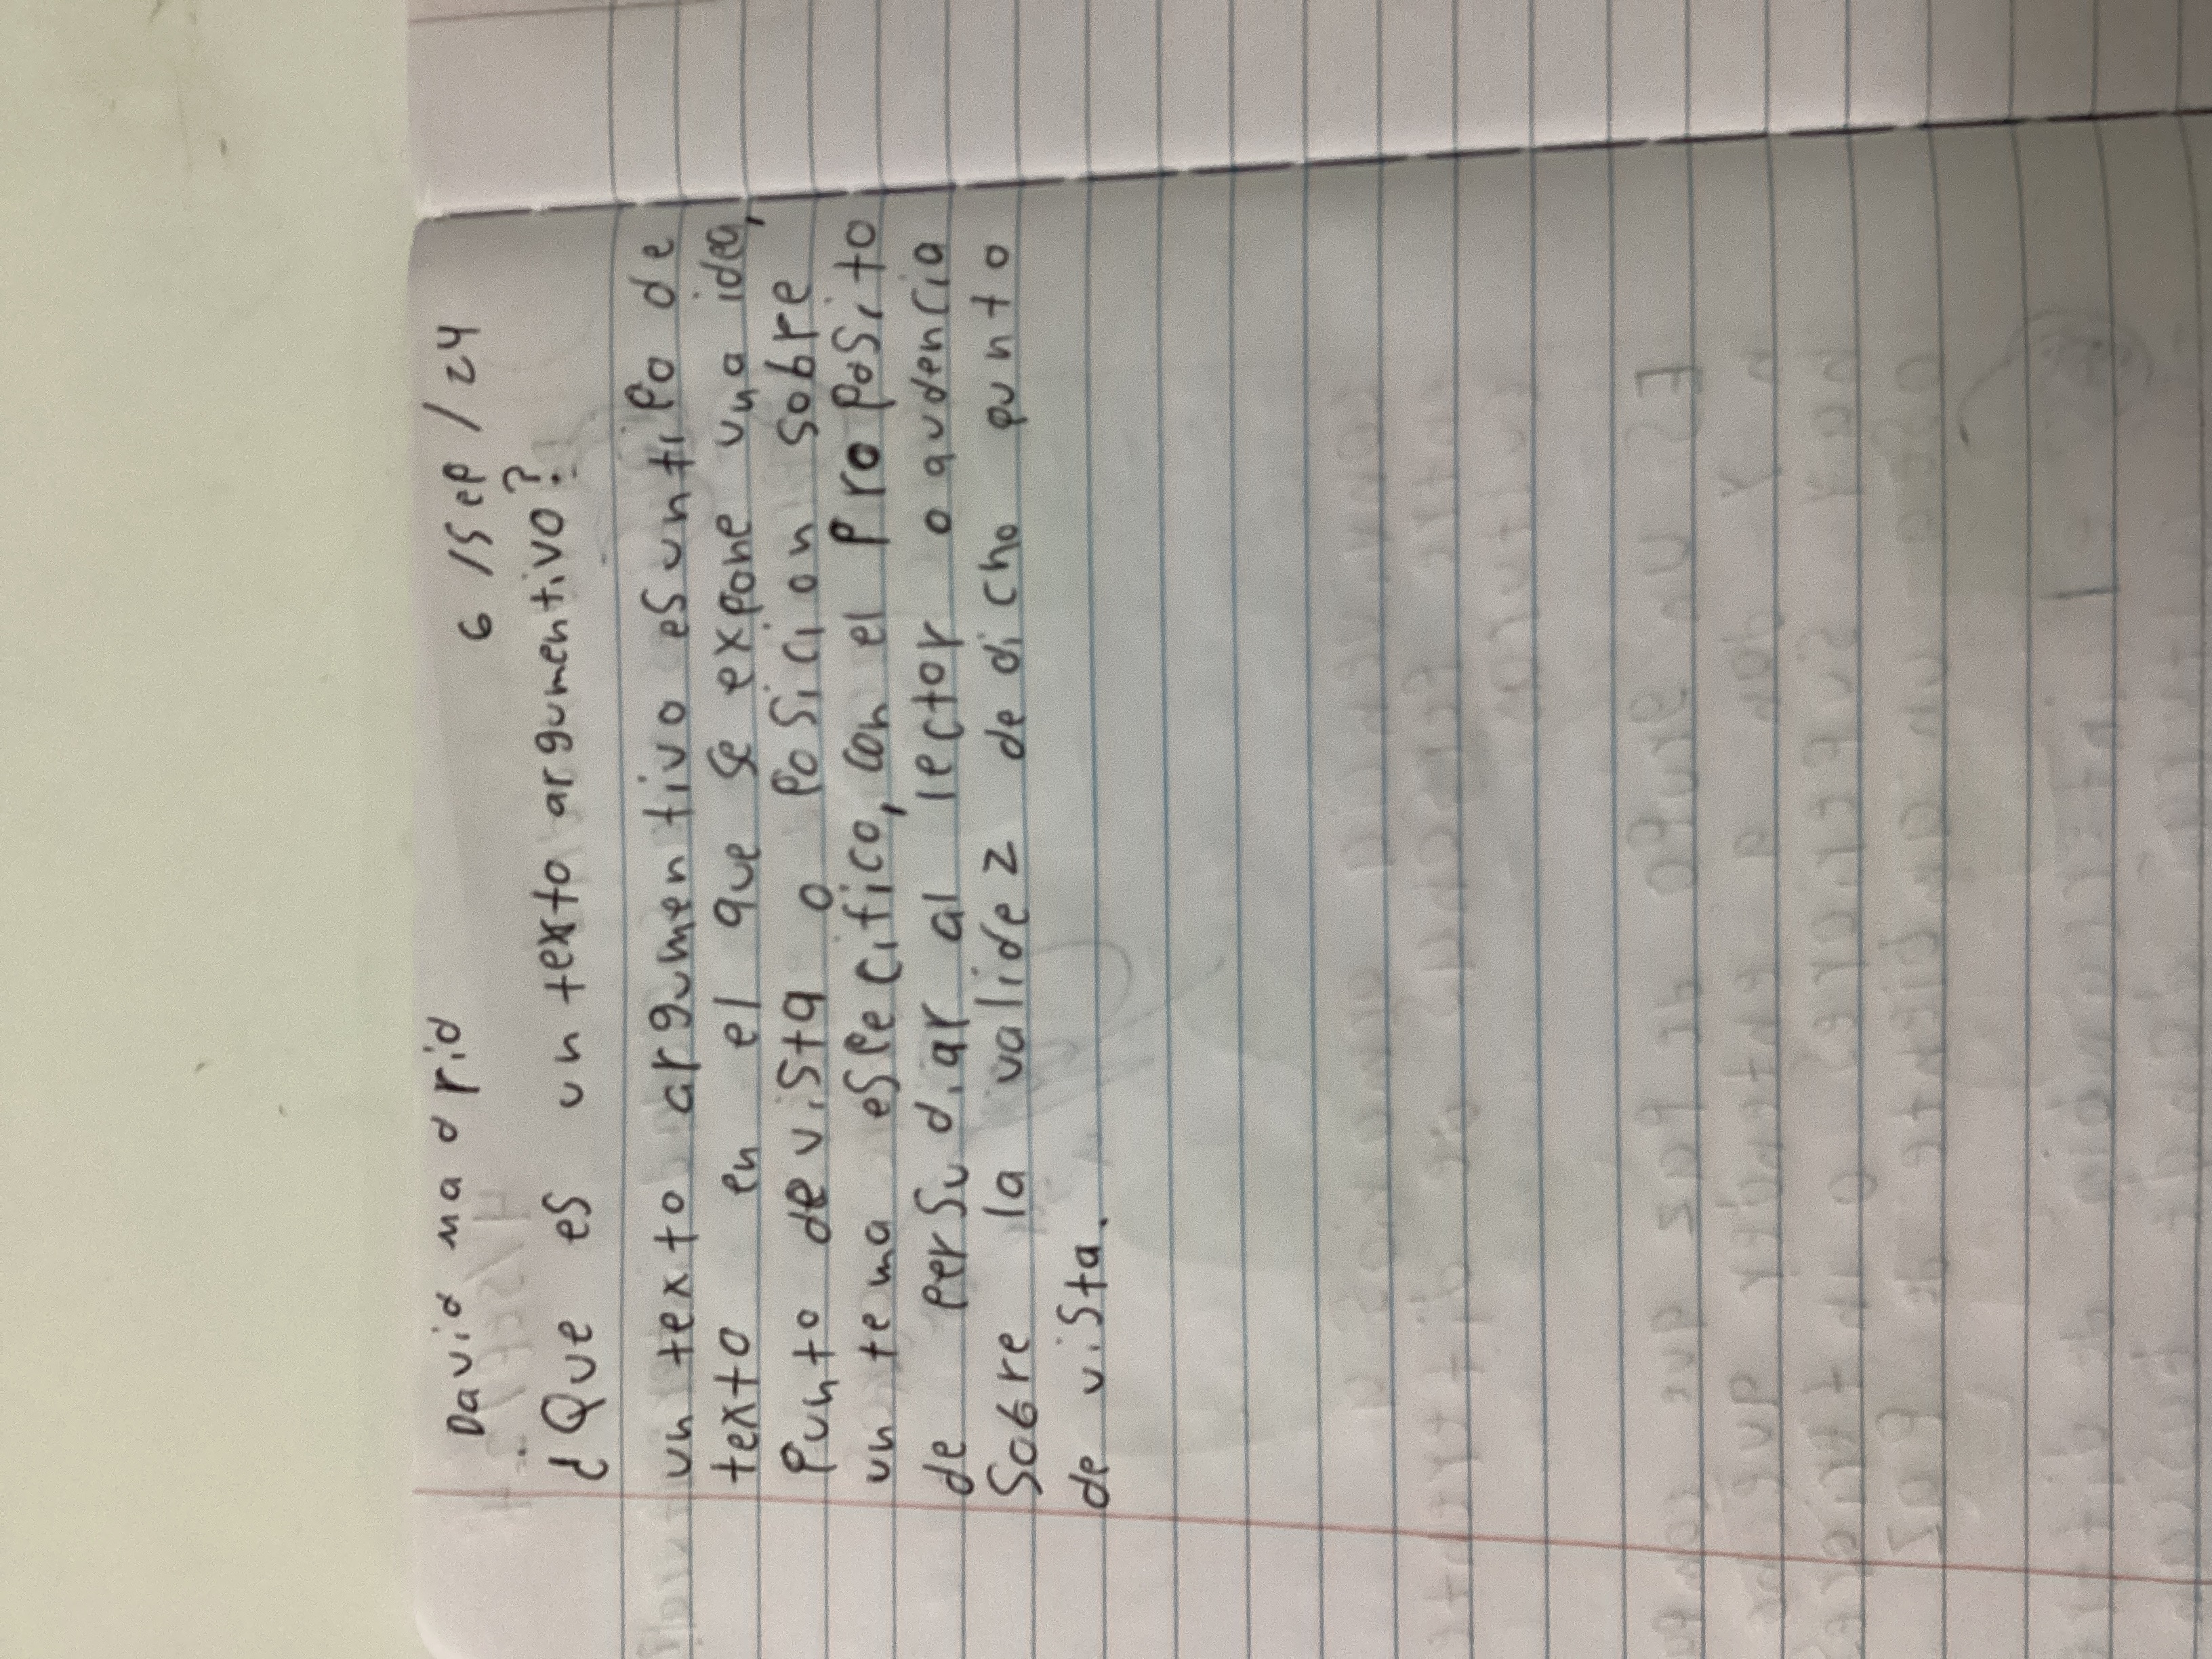 David madrid 6/sep/24
¿Que es un texto argumentivo?
un texto argumentivo es un tipo de
texto en el que se expone una idea,
Punto de vista o posicion sobre
un tema especifico, con el proposito
de persudiar al lector o audencia
sobre la validez de dicho punto
de vista.